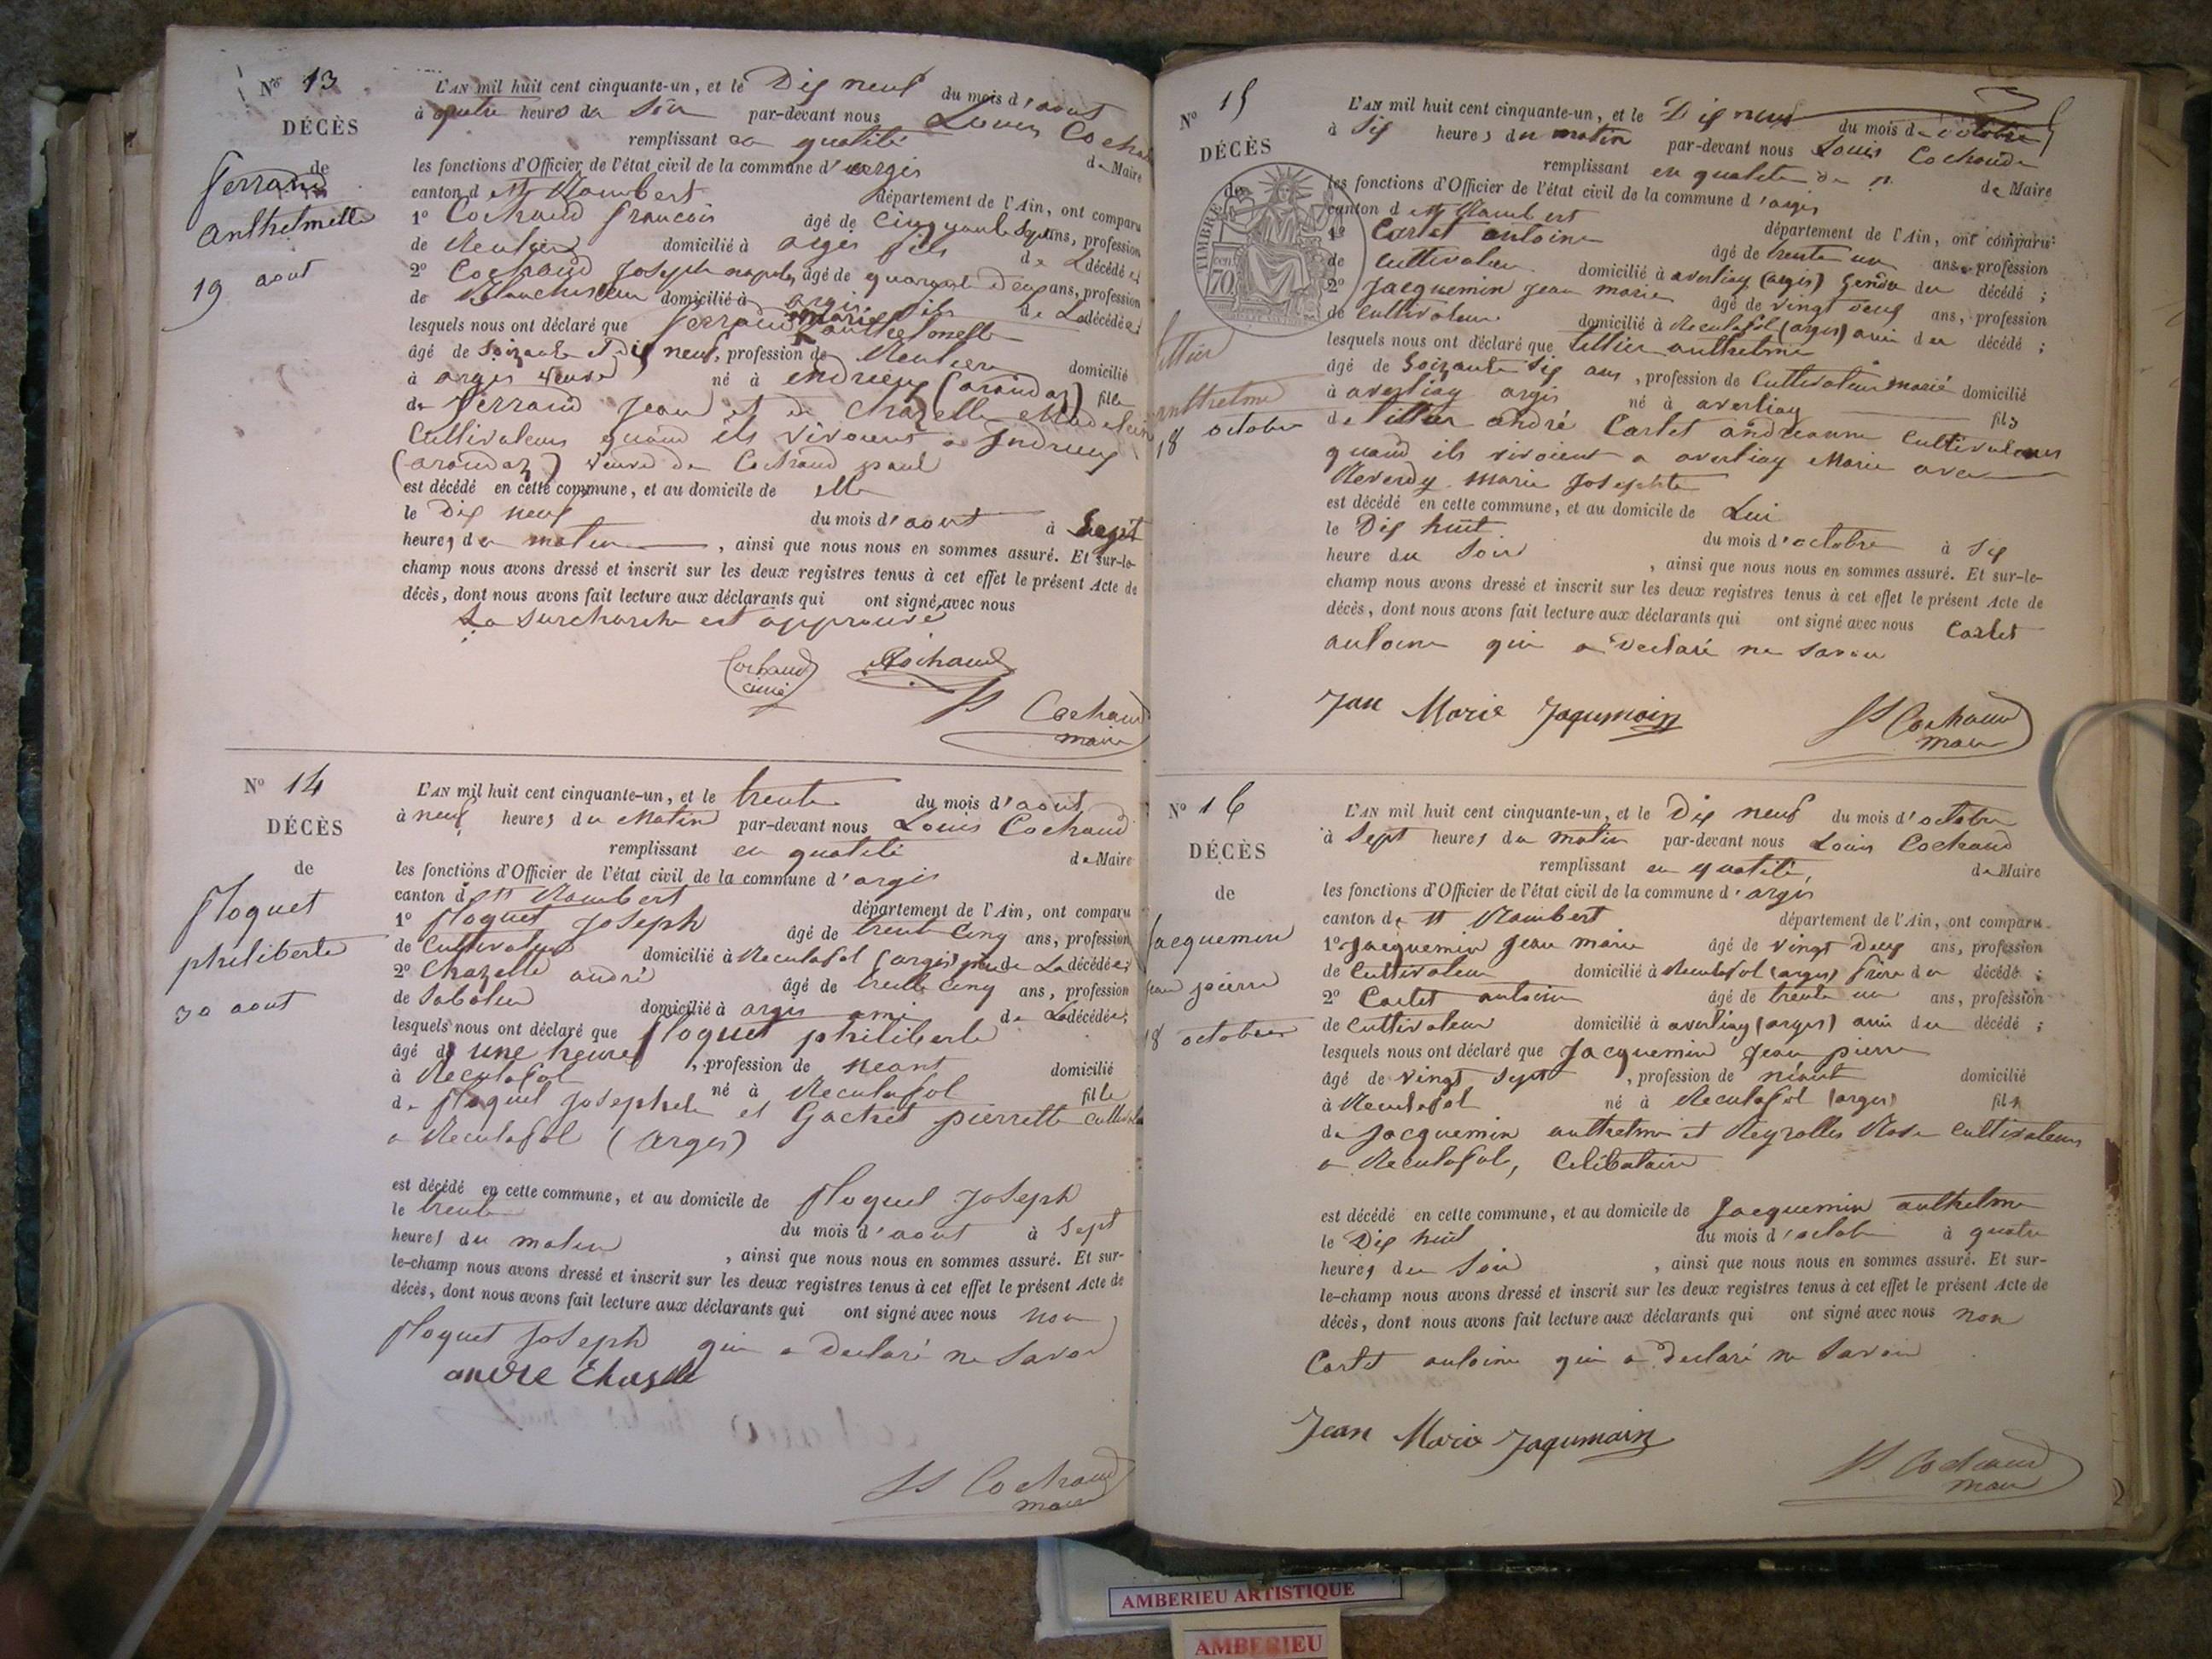 Nº 13
DÉCÈS
de
ferrand
anthelmette
19 aout
L'AN mil huit cent cinquante-un, et le Dix neuf du mois d'aout
à quatre heures du Soir par-devant nous Louis Cochaud
remplissant en qualité de Maire
les fonctions d'Officier de l'état civil de la commune d'argis
canton de St Rambert département de l'Ain, ont comparu
1º Cochaud francois âgé de Cinquante Sept ans, profession
de Rentier domicilié à argis fils de La décédée;
2º Cochaud Joseph âgé de quarante Deux ans, profession
de Blanchisseur domicilié à argis fils de La décédée;
lesquels nous ont déclaré que ferrand Marie anthelmette
âgé de Soixante et Dix neuf, profession de Rentiere domicilié
à argis veuve né à endrieux (arandas) fille
de ferrand Jean et de Chazelle Madeleine
Cultivateurs quand ils vivoient a Indrieux
(arandas) veuve de Cochaud paul
est décédé en cette commune, et au domicile de elle
le Dix neuf du mois d'aout à Sept
heures du matin, ainsi que nous nous en sommes assuré. Et sur-le-
champ nous avons dressé et inscrit sur les deux registres tenus à cet effet le présent Acte de
décès, dont nous avons fait lecture aux déclarants qui ont signé avec nous
La Surcharche est approuvé
Cochaud
Cochaud
Ls Cochaud
maire
Nº 14
DÉCÈS
de
floquet
philiberte
30 aout
L'AN mil huit cent cinquante-un, et le trente du mois d'aout
à neuf heures du Matin par-devant nous Louis Cochaud
remplissant en qualité de Maire
les fonctions d'Officier de l'état civil de la commune d'argis
canton de St Rambert département de l'Ain, ont comparu
1º floquet Joseph âgé de trente Cinq ans, profession
de Cultivateur domicilié à Reculafol (argis) père de La décédée;
2º Chazelle andré âgé de trente Cinq ans, profession
de Sabotier domicilié à argis ami de La décédée;
lesquels nous ont déclaré que floquet philiberte
âgé de une heure, profession de néant domicilié
à Reculafol né à Reculafol fille
de floquet Joseph et Gachet pierrette
a Reculafol (Argis)
est décédé en cette commune, et au domicile de floquet Joseph
le trente du mois d'aout à Sept
heures du matin, ainsi que nous nous en sommes assuré. Et sur-
le-champ nous avons dressé et inscrit sur les deux registres tenus à cet effet le présent Acte de
décès, dont nous avons fait lecture aux déclarants qui ont signé avec nous non
floquet Joseph qui a Declaré ne Savoir
andre Chaselle
Ls Cochaud
maire
Nº 15
DÉCÈS
de
TIMBRE
70
tittier
anthelme
18 octobre
L'AN mil huit cent cinquante-un, et le Dix neuf du mois de octobre
à Six heures du matin par-devant nous Louis Cochaud
remplissant en qualité de Maire
les fonctions d'Officier de l'état civil de la commune d'argis
canton de St Rambert département de l'Ain, ont comparu:
1º Cartet antoine âgé de trente un ans, profession
de Cultivateur domicilié à averliay (argis) Gendre du décédé;
2º Jacquemin Jean marie âgé de vingt Deux ans, profession
de Cultivateur domicilié à Reculafol (argis) ami du décédé;
lesquels nous ont déclaré que tittier anthelme
âgé de Soixante Six ans, profession de Cultivateur marié domicilié
à averliay argis né à averliay fils
de tittier andré Cartet andréanne Cultivateurs
quand ils vivoient a averliay Marié avec
Reverdy marie Josephte
est décédé en cette commune, et au domicile de Lui
le Dix huit du mois d'octobre à Six
heure du Soir, ainsi que nous nous en sommes assuré. Et sur-le-
champ nous avons dressé et inscrit sur les deux registres tenus à cet effet le présent Acte de
décès, dont nous avons fait lecture aux déclarants qui ont signé avec nous Cartet
antoine qui a Declaré ne Savoir
Jean Marie Jaqumain
Ls Cochaud
maire
Nº 16
DÉCÈS
de
Jacquemin
Jean pierre
18 octobre
L'AN mil huit cent cinquante-un, et le Dix neuf du mois d'octobre
à Sept heures du matin par-devant nous Louis Cochaud
remplissant en qualité de Maire
les fonctions d'Officier de l'état civil de la commune d'argis
canton de St Rambert département de l'Ain, ont comparu
1º Jacquemin Jean marie âgé de vingt Deux ans, profession
de Cultivateur domicilié à Reculafol (argis) frère du décédé;
2º Cartet antoine âgé de trente un ans, profession
de Cultivateur domicilié à averliay (argis) ami du décédé;
lesquels nous ont déclaré que Jacquemin Jean pierre
âgé de vingt Sept, profession de néant domicilié
à Reculafol né à Reculafol (argis) fils
de Jacquemin anthelme et Reyrolles Rose Cultivateurs
a Reculafol, Célibataire
est décédé en cette commune, et au domicile de Jacquemin anthelme
le Dix huit du mois d'octobre à quatre
heures du Soir, ainsi que nous nous en sommes assuré. Et sur-
le-champ nous avons dressé et inscrit sur les deux registres tenus à cet effet le présent Acte de
décès, dont nous avons fait lecture aux déclarants qui ont signé avec nous non
Cartet antoine qui a Declaré ne Savoir
Jean Marie Jaqumain
Ls Cochaud
maire
AMBERIEU ARTISTIQUE
AMBERIEU